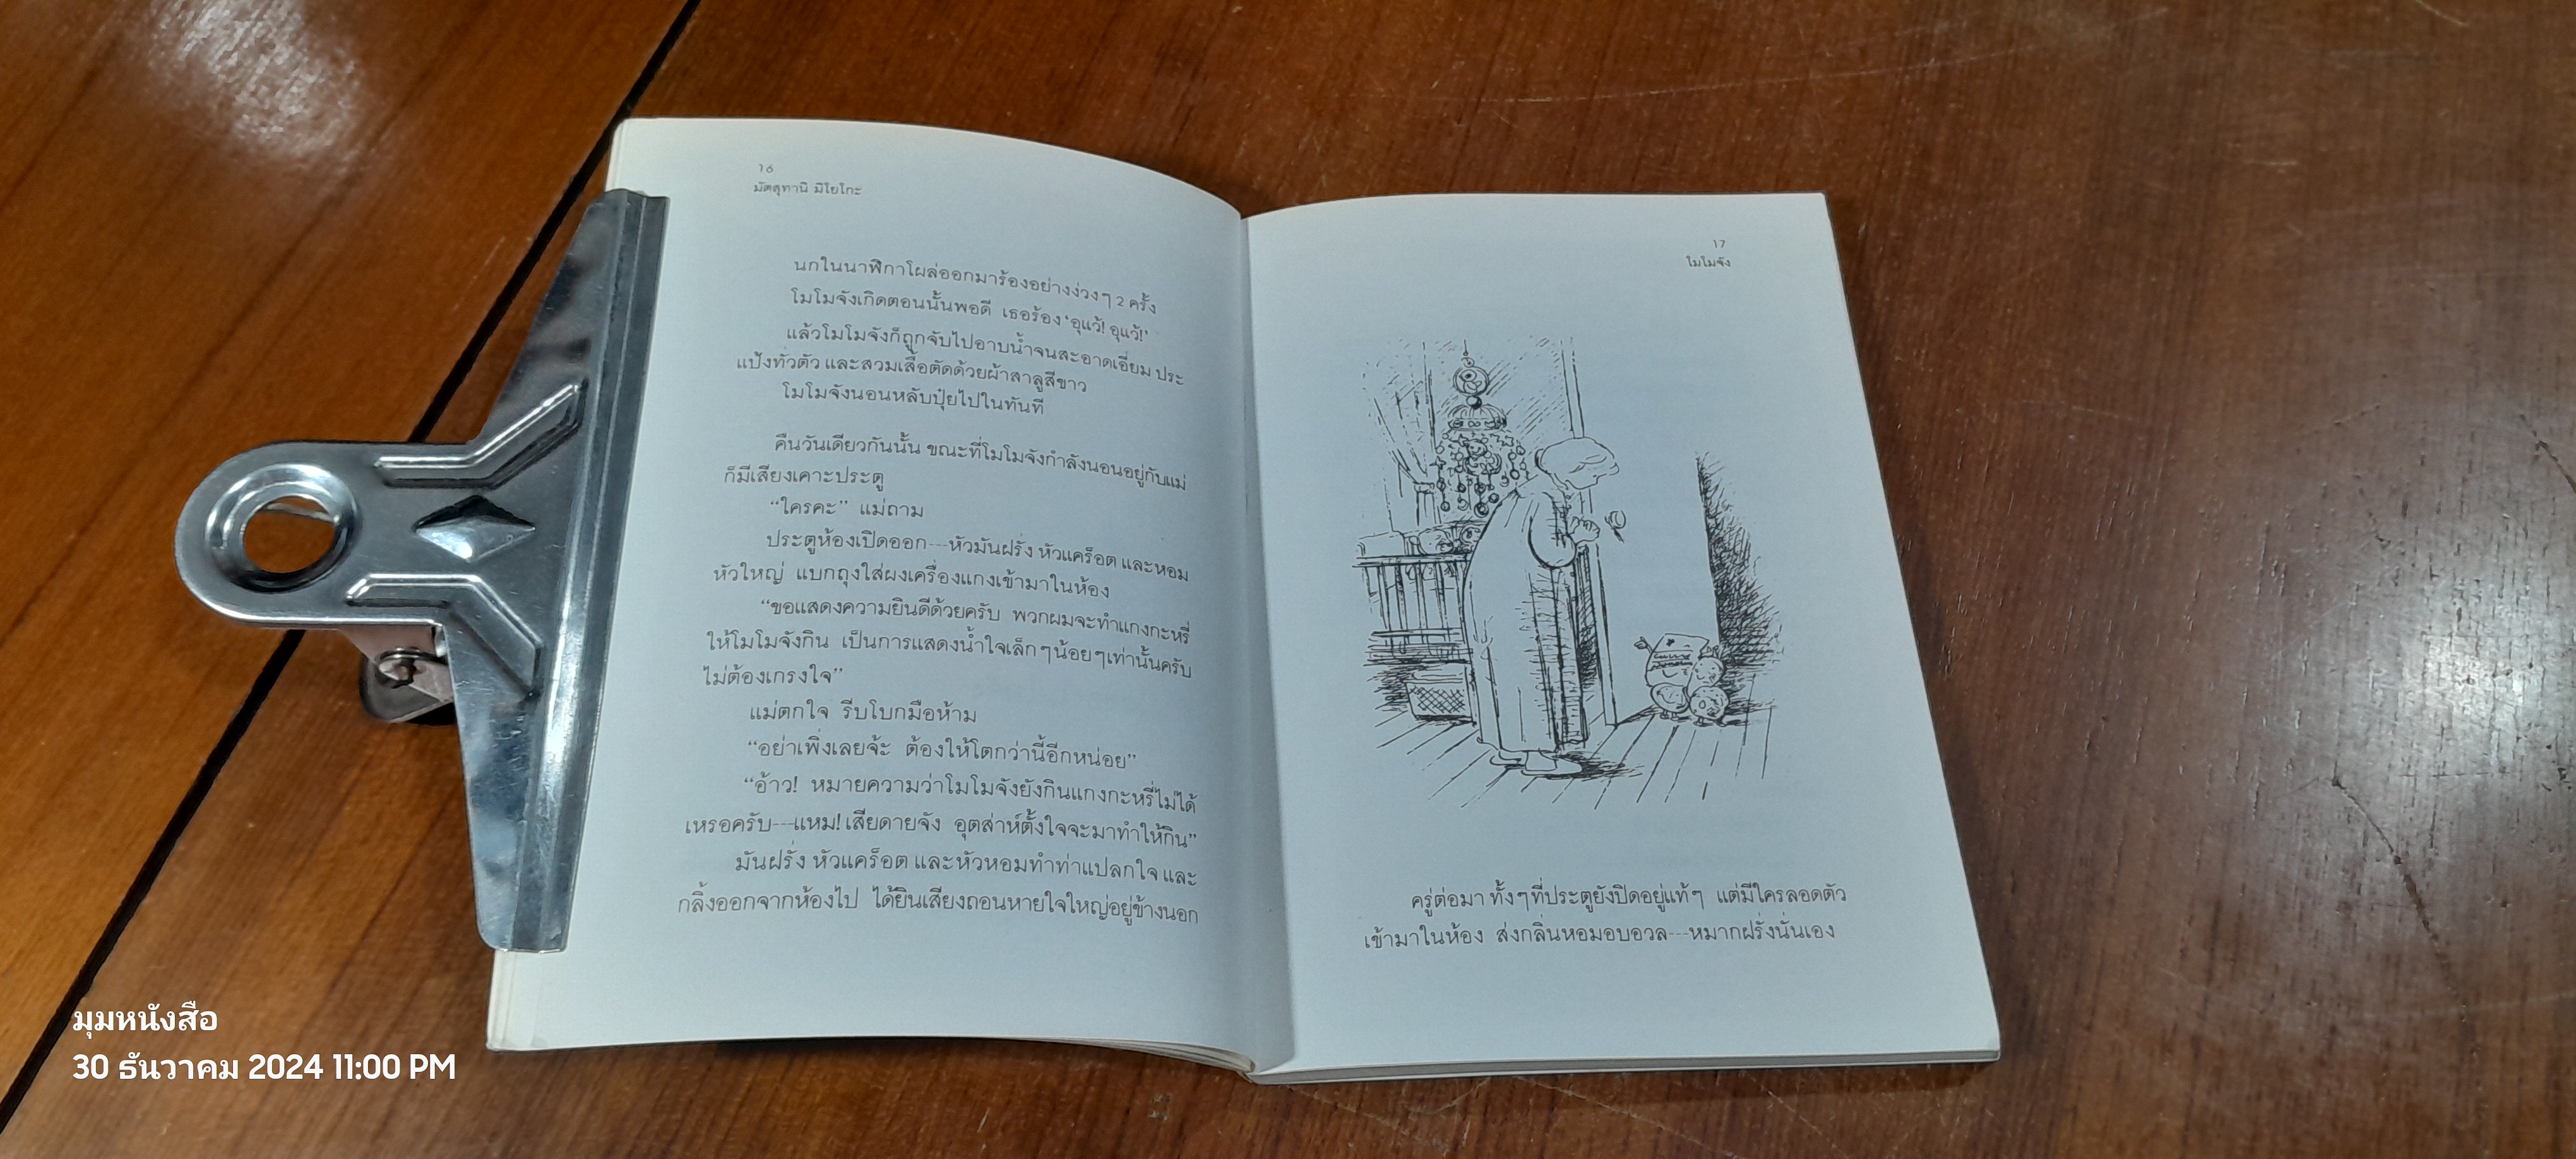 16
มัตสุทานิ มิโยโกะ
นกในนาฬิกาโผล่ออกมาร้องอย่างง่วงๆ 2 ครั้ง
โมโมจังเกิดตอนนั้นพอดี เธอร้อง ‘อุแว้! อุแว้!’
แล้วโมโมจังก็ถูกจับไปอาบน้ำจนสะอาดเอี่ยม ประ
แป้งทั่วตัว และสวมเสื้อตัดด้วยผ้าสาลูสีขาว
โมโมจังนอนหลับปุ๋ยไปในทันที
คืนวันเดียวกันนั้น ขณะที่โมโมจังกำลังนอนอยู่กับแม่
ก็มีเสียงเคาะประตู
“ใครคะ” แม่ถาม
ประตูห้องเปิดออก---หัวมันฝรั่ง หัวแคร็อต และหอม
หัวใหญ่ แบกถุงใส่ผงเครื่องแกงเข้ามาในห้อง
“ขอแสดงความยินดีด้วยครับ พวกผมจะทำแกงกะหรี่
ให้โมโมจังกิน เป็นการแสดงน้ำใจเล็กๆน้อยๆเท่านั้นครับ
ไม่ต้องเกรงใจ”
แม่ตกใจ รีบโบกมือห้าม
“อย่าเพิ่งเลยจ้ะ ต้องให้โตกว่านี้อีกหน่อย”
“อ้าว! หมายความว่าโมโมจังยังกินแกงกะหรี่ไม่ได้
เหรอครับ---แหม! เสียดายจัง อุตส่าห์ตั้งใจจะมาทำให้กิน”
มันฝรั่ง หัวแคร็อต และหัวหอมทำท่าแปลกใจ และ
กลิ้งออกจากห้องไป ได้ยินเสียงถอนหายใจใหญ่อยู่ข้างนอก
17
โมโมจัง
ครู่ต่อมา ทั้งๆที่ประตูยังปิดอยู่แท้ๆ แต่มีใครลอดตัว
เข้ามาในห้อง ส่งกลิ่นหอมอบอวล---หมากฝรั่งนั่นเอง
มุมหนังสือ
30 ธันวาคม 2024 11:00 PM